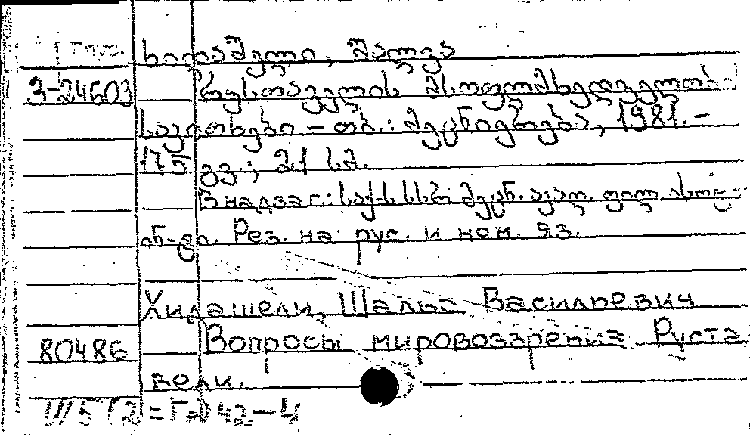 ხიდაშელი, შალვა
3-24603 რუსთაველის მსოფლმხედველობ.
საკითხები – თბ.: მეცნიერება, 1981. –
175 გვ.; 21 სმ.
В надзаг.: საქ. სსრ მეცნ. აკად. ფილოსოფ.
ინ-ტი. Рез. на рус. и нем. яз.
Хидашели, Шалва Васильевич
80486 Вопросы мировоззрения Руста
вели.